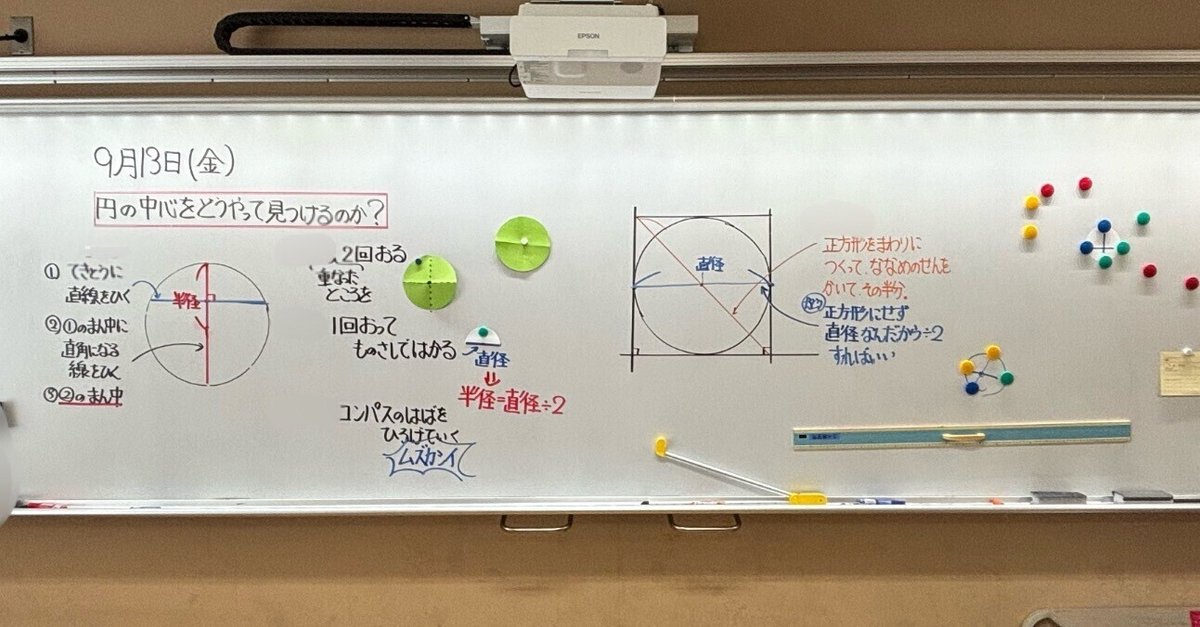 EPSON
9月13日(金)
円の中心をどうやって見つけるのか?
① てきとうに
直線をひく
②①のまん中に
直角になる
線をひく
③②のまん中
半径
2回おる
重なった
ところを
1回おって
ものさしではかる
直径
⇓
半径=直径÷2
コンパスのはばを
ひろげていく
ムズカシイ
直径
正方形をまわりに
つくって、ななめのせんを
かいて、その半分。
正方形にせず
直径なんだから÷2
すればいい